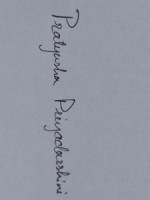 Pratyusha Priyadarshini